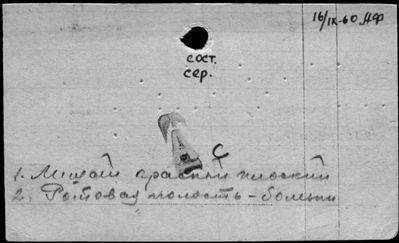 16/IX-60 АФ
сост.
сер.
С
1. Лишай красный плоский
2. Ротовая полость -